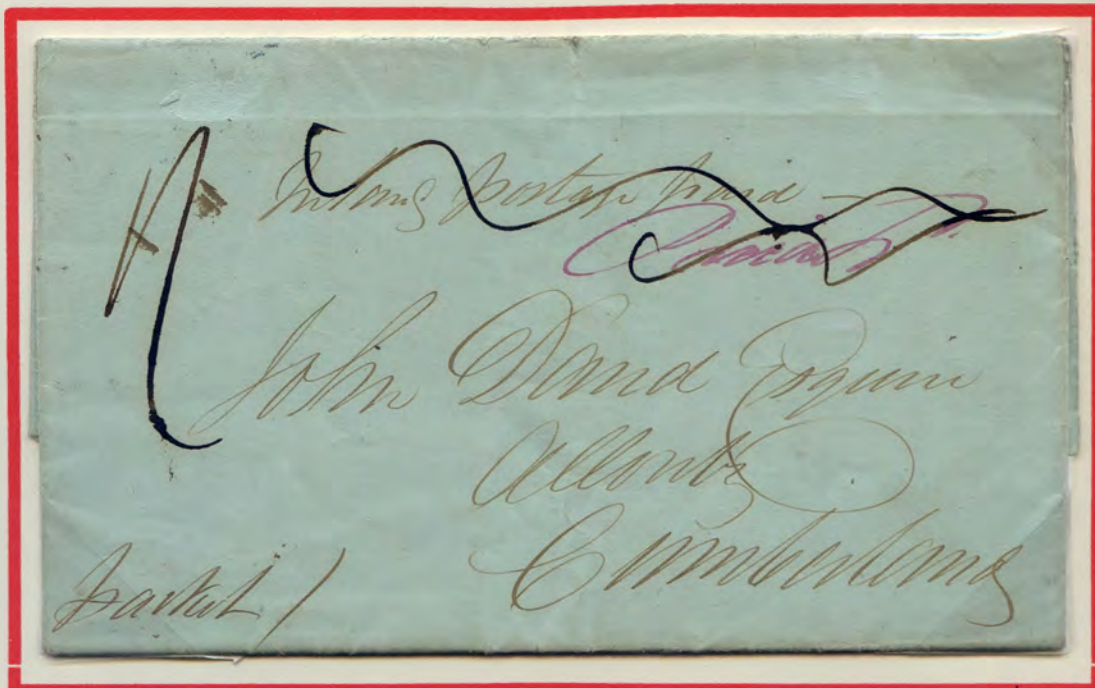 Inland postage paid -
John Dand Esquire
Allonby
Cumberland
packet /